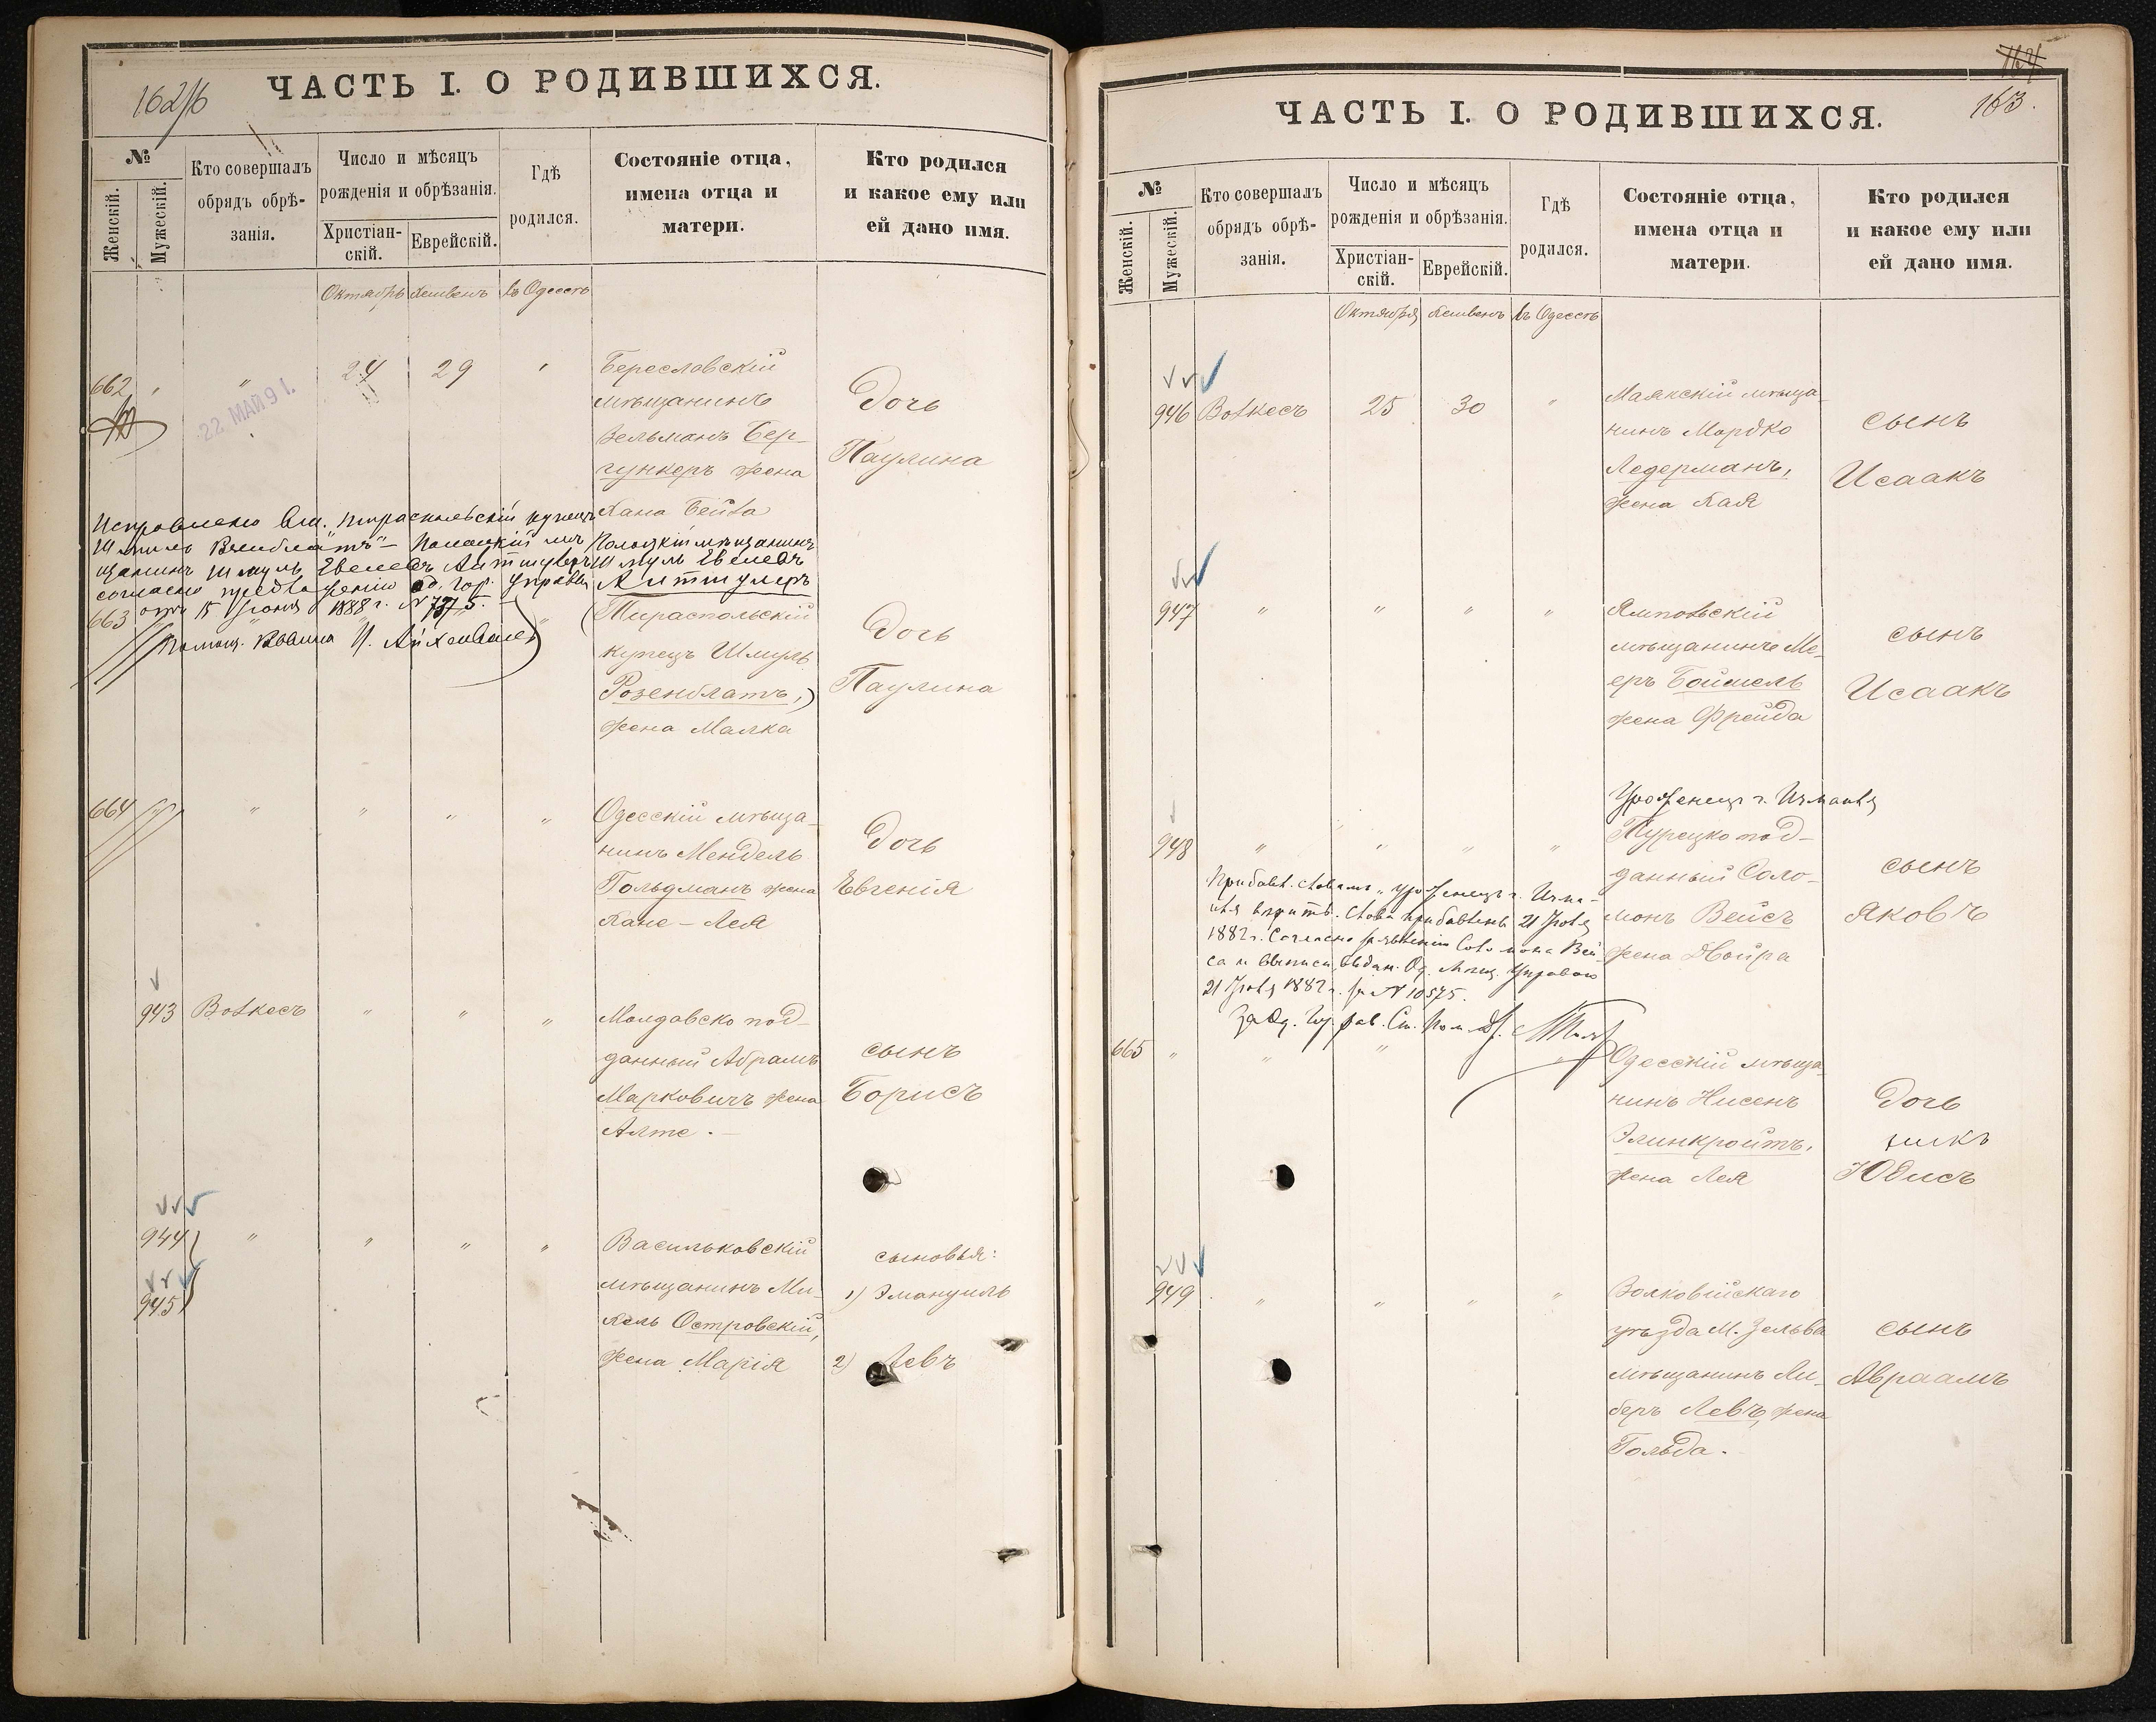 162/б
ЧАСТЬ I. О РОДИВШИХСЯ.
№
Женскій.
Мужескій.
Кто совершалъ
обрядъ обрѣ-
занія.
Число и мѣсяцъ
рожденія и обрѣзанія.
Христіан-
скій.
Еврейскій.
Гдѣ
родился.
Состояніе отца,
имена отца и
матери.
Кто родился
и какое ему или
ей дано имя.
Октябрь Хешвенъ въ Одессѣ
662 " " 24 29 "
22. МАЙ 9 1.
Береславскій
мѣщанинъ
Зельманъ Бер-
гункеръ жена
Хана Бейла
Дочь
Паулина
Исправлено вм. тираспольскій купецъ
Шмуль
щанинъ Шмуль
согласно Од. Гор. Управы
отъ 15 Іюня 1888 г. №
Помощ. Раввина
Полоцкій мѣщанинъ
Шмуль
663
(Тираспольскій
купецъ Шмуль
Розенблатъ,)
жена Малка
Дочь
Паулина
664 " " " "
Одесскій мѣща-
нинъ Мендель
Гольдманъ жена
Хане-Лея
Дочь
Евгенія
943 Волкесъ " " "
Молдавско под-
данный Абрамъ
Марковичъ жена
Алте.-
сынъ
Борисъ
944 " " " "
945
Васильковскій
мѣщанинъ Ми-
хель Островскій,
жена Марія
сыновья:
1) Эмануиль
2) Левъ
164
163.
ЧАСТЬ I. О РОДИВШИХСЯ.
№
Женскій.
Мужескій.
Кто совершалъ
обрядъ обрѣ-
занія.
Число и мѣсяцъ
рожденія и обрѣзанія.
Христіан-
скій.
Еврейскій.
Гдѣ
родился.
Состояніе отца,
имена отца и
матери.
Кто родился
и какое ему или
ей дано имя.
Октября Хешвенъ въ Одессѣ
946 Волкесъ 25 30 "
Маякскій мѣща-
нинъ Мордко
Ледерманъ,
жена Хая
сынъ
Исаакъ
947 " " " "
Ямпольскій
мѣщанинъ Ме-
еръ Бойшель
жена Фрейда
сынъ
Исаакъ
948 " " " "
Уроженецъ г. Измаила
Турецко под-
данный Соло-
монъ Вейсъ
жена Двойра
сынъ
Яковъ
Прибавл. словамъ „уроженецъ г. Изма-
ила вѣрить. Слова прибавлены 21 Іюля
1882 г. Согласно заявленію Соломона Вей-
са и выписи, выдан. Од. Мѣщ. Управою
21 Іюля 1882 г. за № 10575.
За Од. Гор. Рав. Ст. Пом.
665 " " "
Одесскій мѣща-
нинъ Нисенъ
Элинкройтъ,
жена Лея
Дочь
Юдисъ
949 " " " "
Волковійскаго
уѣзда М. Зельва
мѣщанинъ Ли-
беръ Левъ, жена
Гольда.
сынъ
Авраамъ